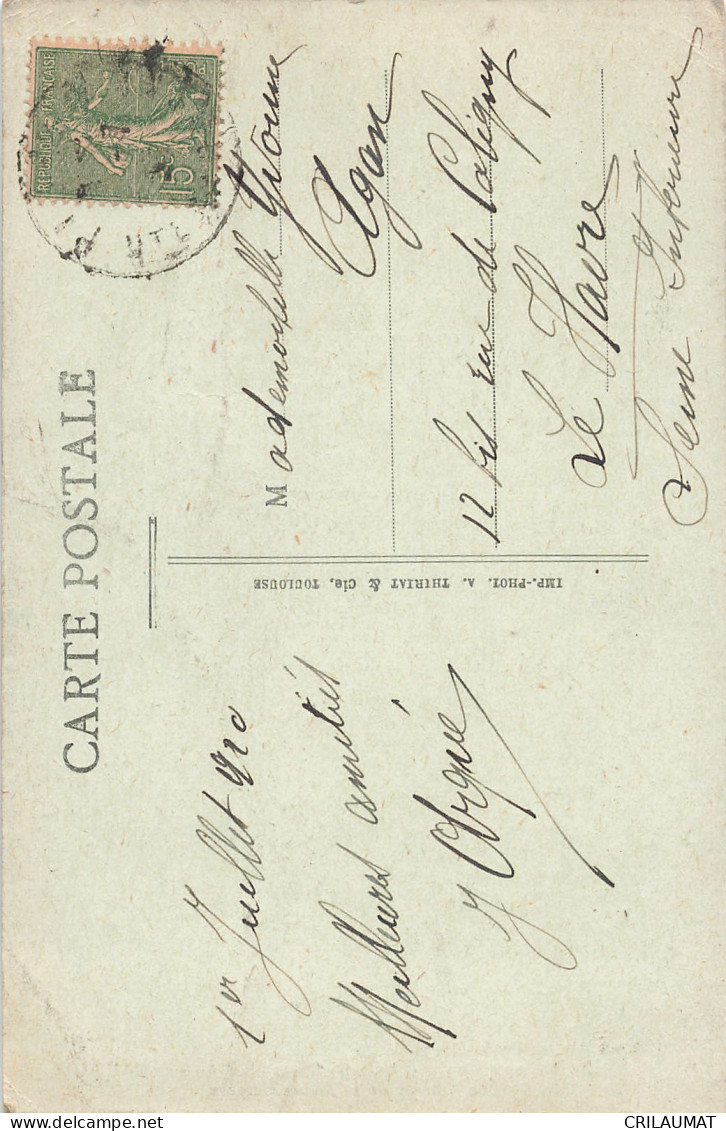 CARTE POSTALE
REPUBLIQUE FRANÇAISE
15
HTE
1er Juillet 920
Meilleures amitiés
Mademoiselle Yvonne
Agan
12 bis rue de Coligny
Le Havre
Seine Inférieure
IMP.-PHOT. A. THIRIAT & Cie, TOULOUSE
CRILAUMAT